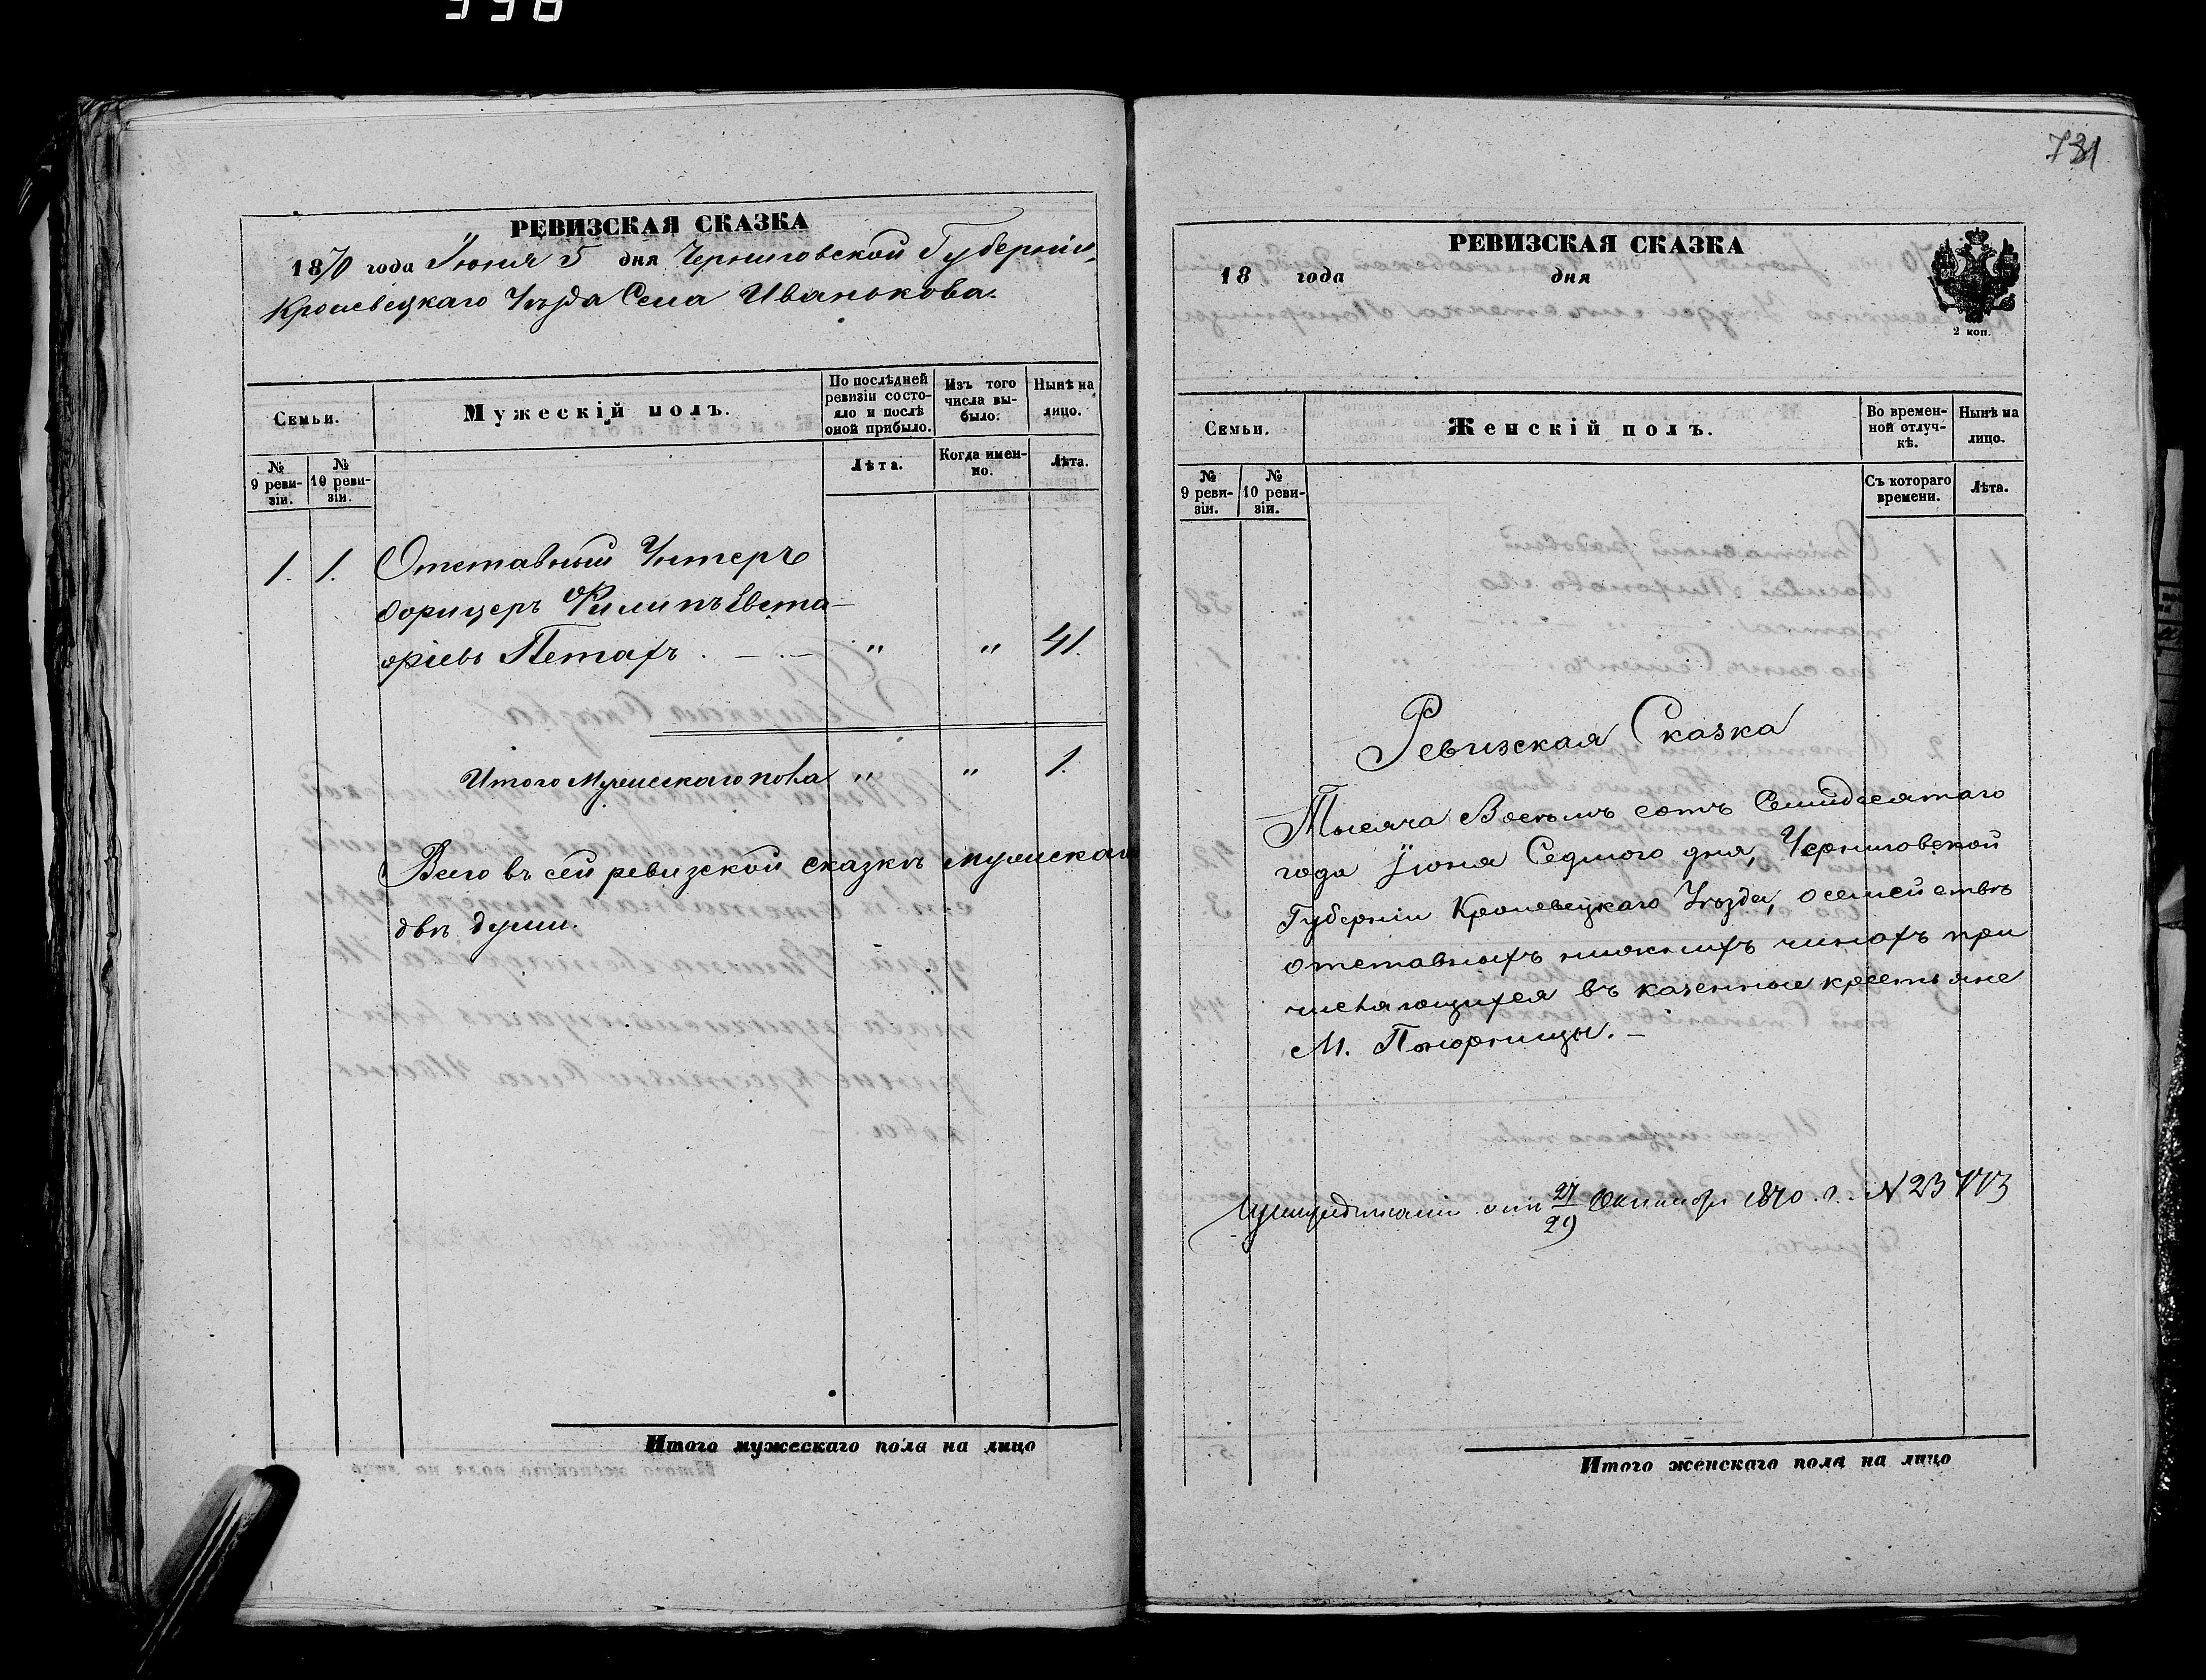 731
РЕВИЗСКАЯ СКАЗКА
1870 года Июня 5 дня Черниговской Губерніи,
Кролевецкаго Уѣзда Села Иванькова.
Семьи.
Мужескій полъ.
По послѣдней ревизіи состояло и послѣ оной прибыло.
Изъ того числа выбыло.
Нынѣ на лицо.
№ 9 ревизіи.
№ 10 ревизіи.
Лѣта.
Когда именно.
Лѣта.
1. 1. Отставный Унтеръ
Офицеръ Филипъ Евста-
фіевъ Петахъ . — . — " " 41.
Итого Мужескаго пола " " 1.
Всего въ сей ревизской сказкѣ мужскаго
двѣ души.
Итого мужескаго пола на лицо
РЕВИЗСКАЯ СКАЗКА
18 года дня
2 коп.
Семьи.
Женскій полъ.
Во временной отлучкѣ.
Нынѣ на лицо.
№ 9 ревизіи.
№ 10 ревизіи.
Съ котораго времени.
Лѣта.
Ревизская Сказка
Тысяча Восемъ сотъ Семидесятаго
года Іюня Седмого дня, Черниговской
Губерніи Кролевецкаго Уѣзда, о семействѣ
отставныхъ нижнихъ чинахъ при
числяющихся въ казенные крестьяне
М. Понорницы. —
27/29 Октября 1870 г. N 23773
Итого женскаго пола на лицо